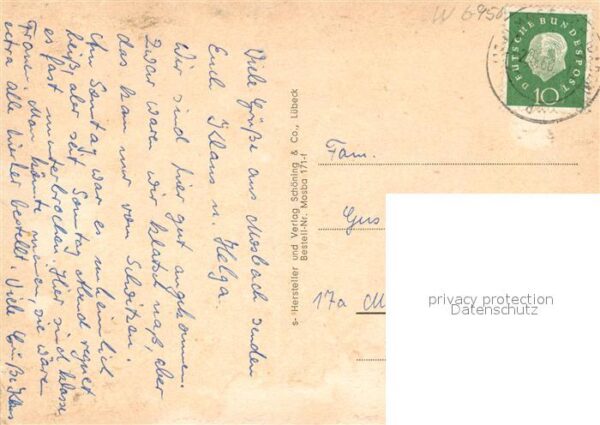 W 6956
DEUTSCHE BUNDESPOST
10
Viele Grüße aus Mosbach senden
Euch Klaus u. Helga.
Wir sind hier gut angekommen.
Zwar waren wir klatsch naß, aber
das kam nur vom Schwitzen.
Am Sonntag war es unheimlich
heiß, aber seit Sonntag Abend regnet
es fast ununterbrochen. Hier sind klasse
Frauen. Man könnte meinen, sie wären
extra alle hierher bestellt. Viele Grüße Klaus
s - Hersteller und Verlag Schöning & Co., Lübeck
Bestell-Nr. Mosba 171-f
Fam.
Gus
17a M
privacy protection
Datenschutz